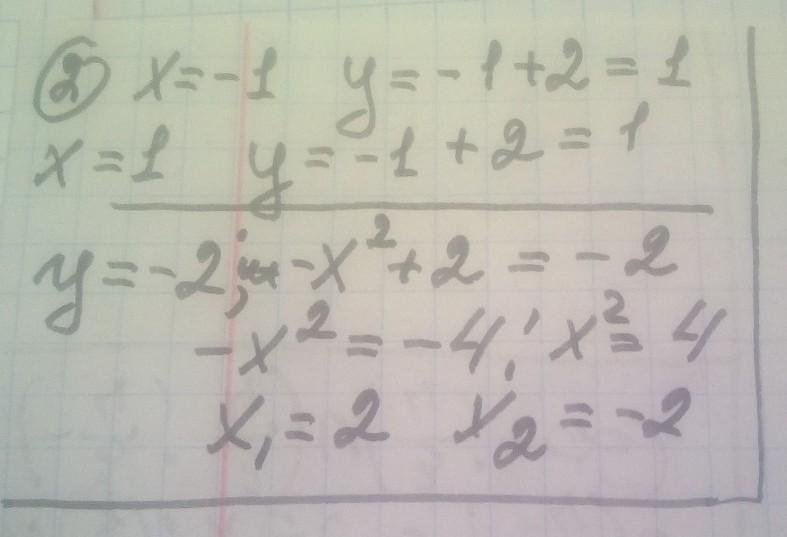 ② x=-1 y=-1+2=1
x=1 y=-1+2=1
y=-2; -x²+2=-2
-x²=-4; x²=4
x₁=2 x₂=-2